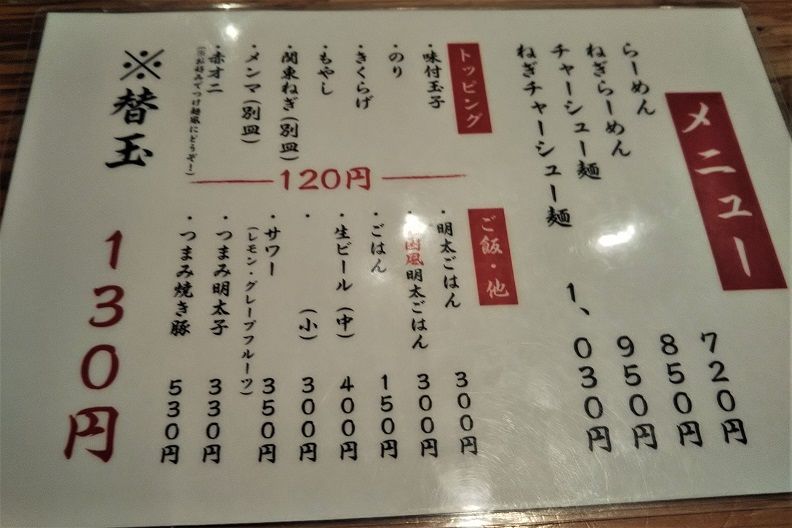 メニュー
らーめん 720円
ねぎらーめん 850円
チャーシュー麺 950円
ねぎチャーシュー麺 1、030円
トッピング
・味付玉子
・のり
・きくらげ
・もやし
・関東ねぎ(別皿)
・メンマ(別皿)
・赤オニ
(※お好みでつけ麺風にどうぞ!)
120円
ご飯・他
・明太ごはん 300円
・風明太ごはん 300円
・ごはん 150円
・生ビール(中) 400円
・(小) 300円
・サワー 350円
(レモン・グレープフルーツ)
・つまみ明太子 330円
・つまみ焼き豚 530円
※替玉 130円